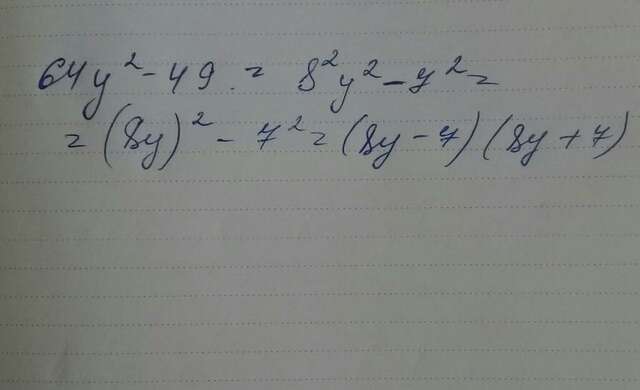 64y² - 49 = 8²y² - 7² =
= (8y)² - 7² = (8y - 7) (8y + 7)